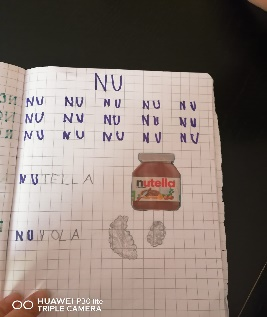 NU
NU NU NU NU NU
NU NU NU NU NU
NU NU NU NU NU
NUTELLA
nutella
NUVOLA
HUAWEI P30 lite
TRIPLE CAMERA